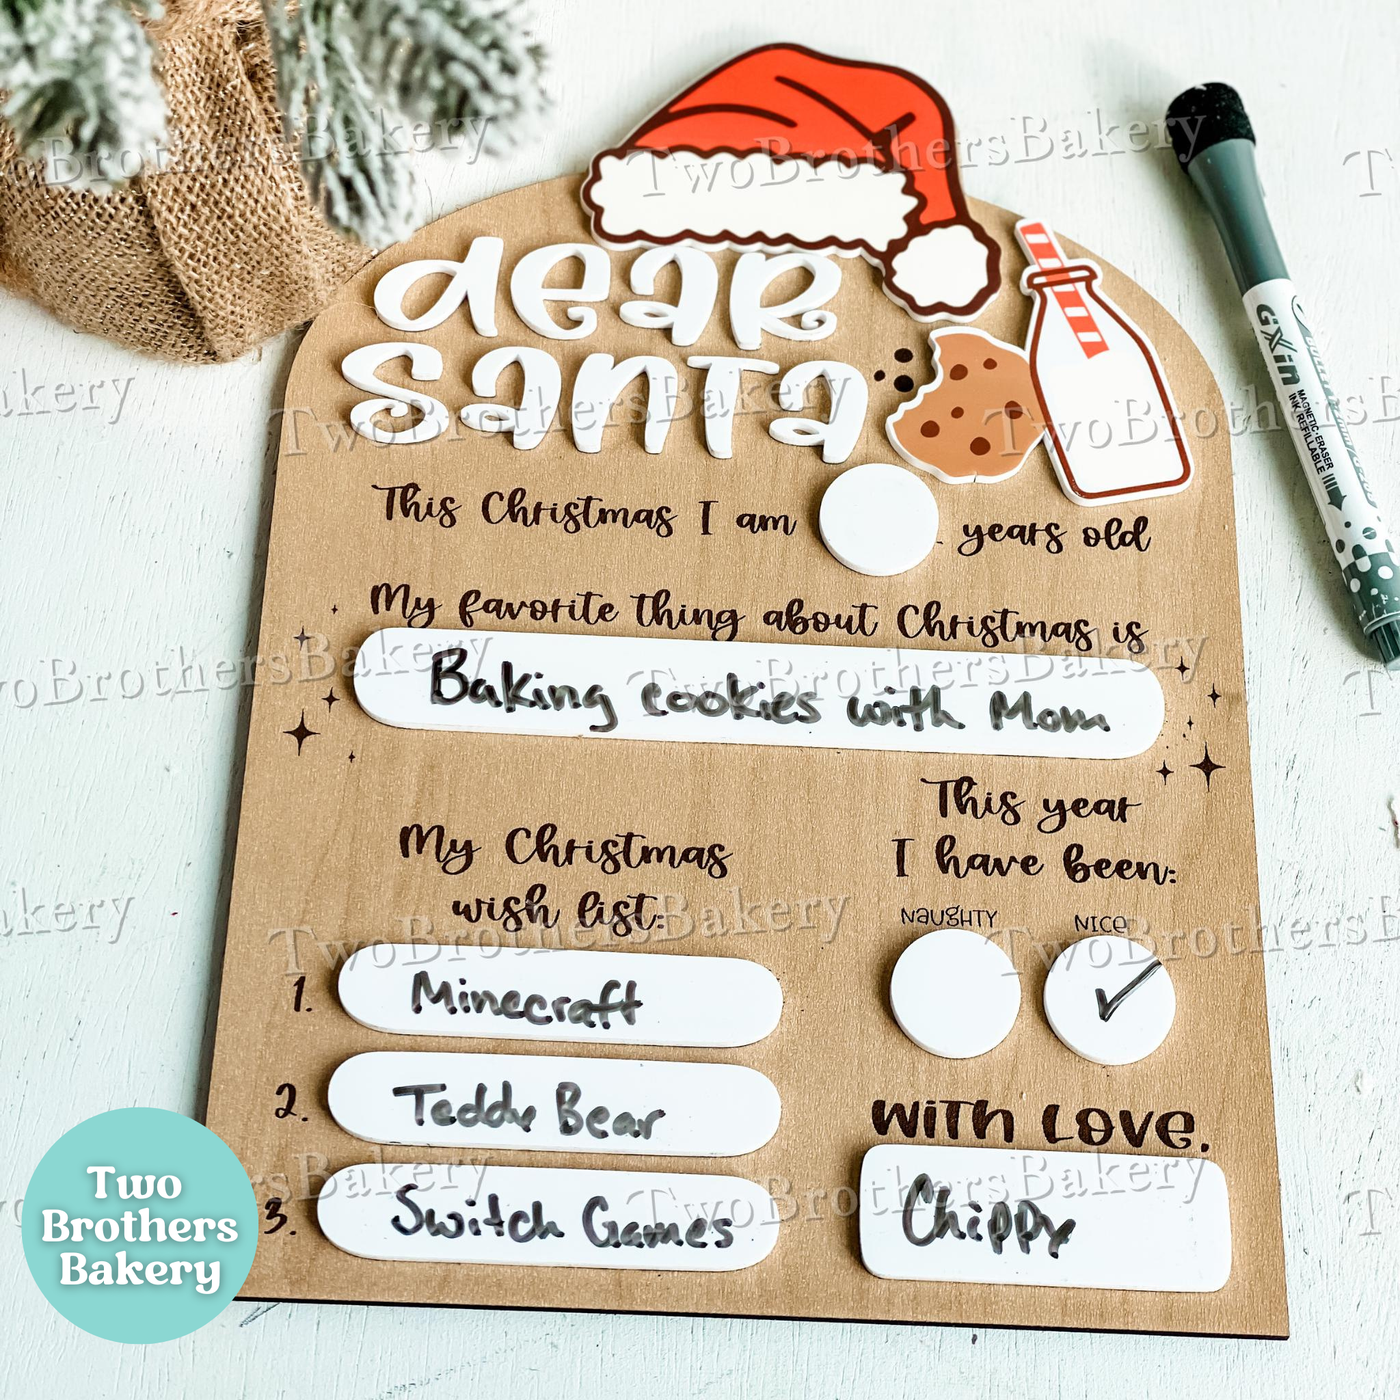 dear
santa
This Christmas I am years old
My favorite thing about Christmas is
Baking cookies with Mom
My Christmas
wish list:
1. Minecraft
2. Teddy Bear
3. Switch Games
This year
I have been:
NAUGHTY NICE
with Love,
Chippy
GXin
MAGNETIC·ERASER
INK REFILLABLE
Two
Brothers
Bakery
TwoBrothersBakery